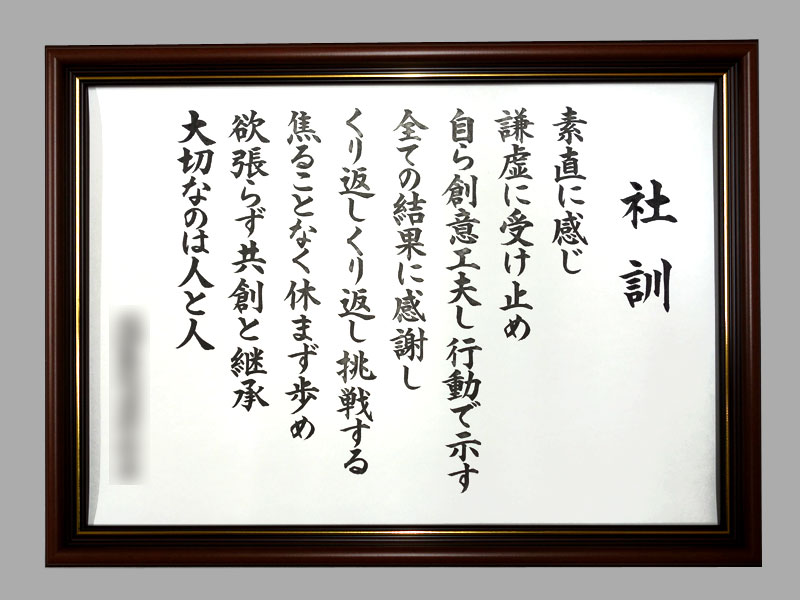 社訓
素直に感じ
謙虚に受け止め
自ら創意工夫し行動で示す
全ての結果に感謝し
くり返しくり返し挑戦する
焦ることなく休まず歩め
欲張らず共創と継承
大切なのは人と人